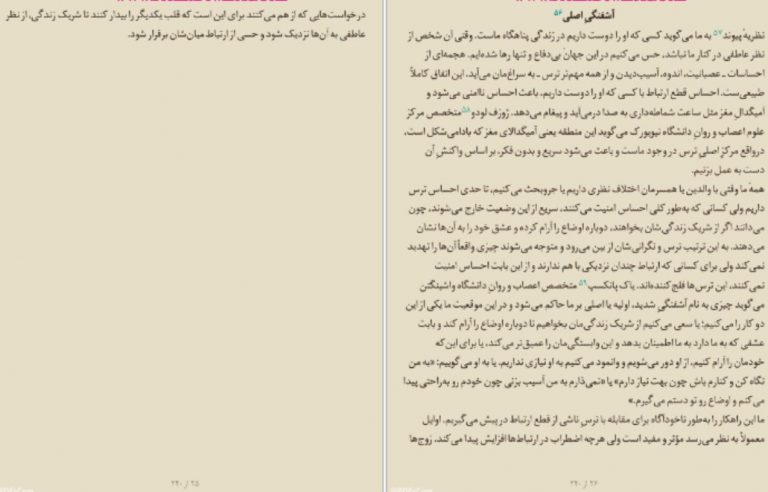 آشفتگی اصلی۵۶
نظریهٔ پیوند۵۷ به ما می‌گوید کسی که او را دوست داریم در زندگی پناهگاه ماست. وقتی آن شخص از
نظر عاطفی در کنار ما نباشد، حس می‌کنیم در این جهانِ بی‌دفاع و تنها رها شده‌ایم. هجمه‌ای از
احساسات ـ عصبانیت، اندوه، آسیب‌دیدن و از همه مهم‌تر ترس ـ به سراغ‌مان می‌آید. این اتفاق کاملاً
طبیعی‌ست. احساس قطع ارتباط با کسی که او را دوست داریم، باعث احساس ناامنی می‌شود و
آمیگدالِ مغز مثل ساعت شماطه‌داری به صدا درمی‌آید و پیغام می‌دهد. ژوزف لودو۵۸ متخصص مرکز
علوم اعصاب و روانِ دانشگاه نیویورک می‌گوید این منطقه یعنی آمیگدالای مغز که بادامی‌شکل است،
درواقع مرکز اصلیِ ترس در وجود ماست و باعث می‌شود سریع و بدون فکر، بر اساس واکنشِ آن
دست به عمل بزنیم.
همهٔ ما وقتی با والدین یا همسرمان اختلاف نظری داریم یا جروبحث می‌کنیم، تا حدی احساس ترس
داریم ولی کسانی که به‌طور کلی احساس امنیت می‌کنند، سریع از این وضعیت خارج می‌شوند، چون
می‌دانند اگر از شریک زندگی‌شان بخواهند، دوباره اوضاع را آرام کرده و عشق خود را به آن‌ها نشان
می‌دهند. به این ترتیب ترس و نگرانی‌شان از بین می‌رود و متوجه می‌شوند چیزی واقعاً آن‌ها را تهدید
نمی‌کند ولی برای کسانی که ارتباط چندان نزدیکی با هم ندارند و از این بابت احساس امنیت
نمی‌کنند، این ترس‌ها فلج کننده‌اند. یاک پانکسپ۵۹ متخصص اعصاب و روانِ دانشگاه واشینگتن
می‌گوید چیزی به نام آشفتگیِ شدید، اولیه یا اصلی بر ما حاکم می‌شود و در این موقعیت ما یکی از این
دو کار را می‌کنیم؛ یا سعی می‌کنیم از شریک زندگی‌مان بخواهیم تا دوباره اوضاع را آرام کند و بابت
عشقی که به ما دارد به ما اطمینان بدهد و این وابستگی‌مان را عمیق‌تر می‌کند، یا برای این‌که
خودمان را آرام کنیم، از او دور می‌شویم و وانمود می‌کنیم به او نیازی نداریم. یا به او می‌گوییم: «به من
نگاه کن و کنارم باش چون بهت نیاز دارم» یا «نمی‌ذارم به من آسیب بزنی چون خودم رو به‌راحتی پیدا
می‌کنم و اوضاع رو تو دستم می‌گیرم.»
ما این راهکار را به‌طور ناخودآگاه برای مقابله با ترسِ ناشی از قطع ارتباط در پیش می‌گیریم. اوایل
معمولاً به نظر می‌رسد مؤثر و مفید است ولی هرچه اضطراب در ارتباط‌ها افزایش پیدا می‌کند، زوج‌ها
۲۴ از ۲۴۰
درخواست‌هایی که از هم می‌کنند برای این است که قلب یکدیگر را بیدار کنند تا شریک زندگی، از نظر
عاطفی به آن‌ها نزدیک شود و حسی از ارتباط میان‌شان برقرار شود.
۲۵ از ۲۴۰